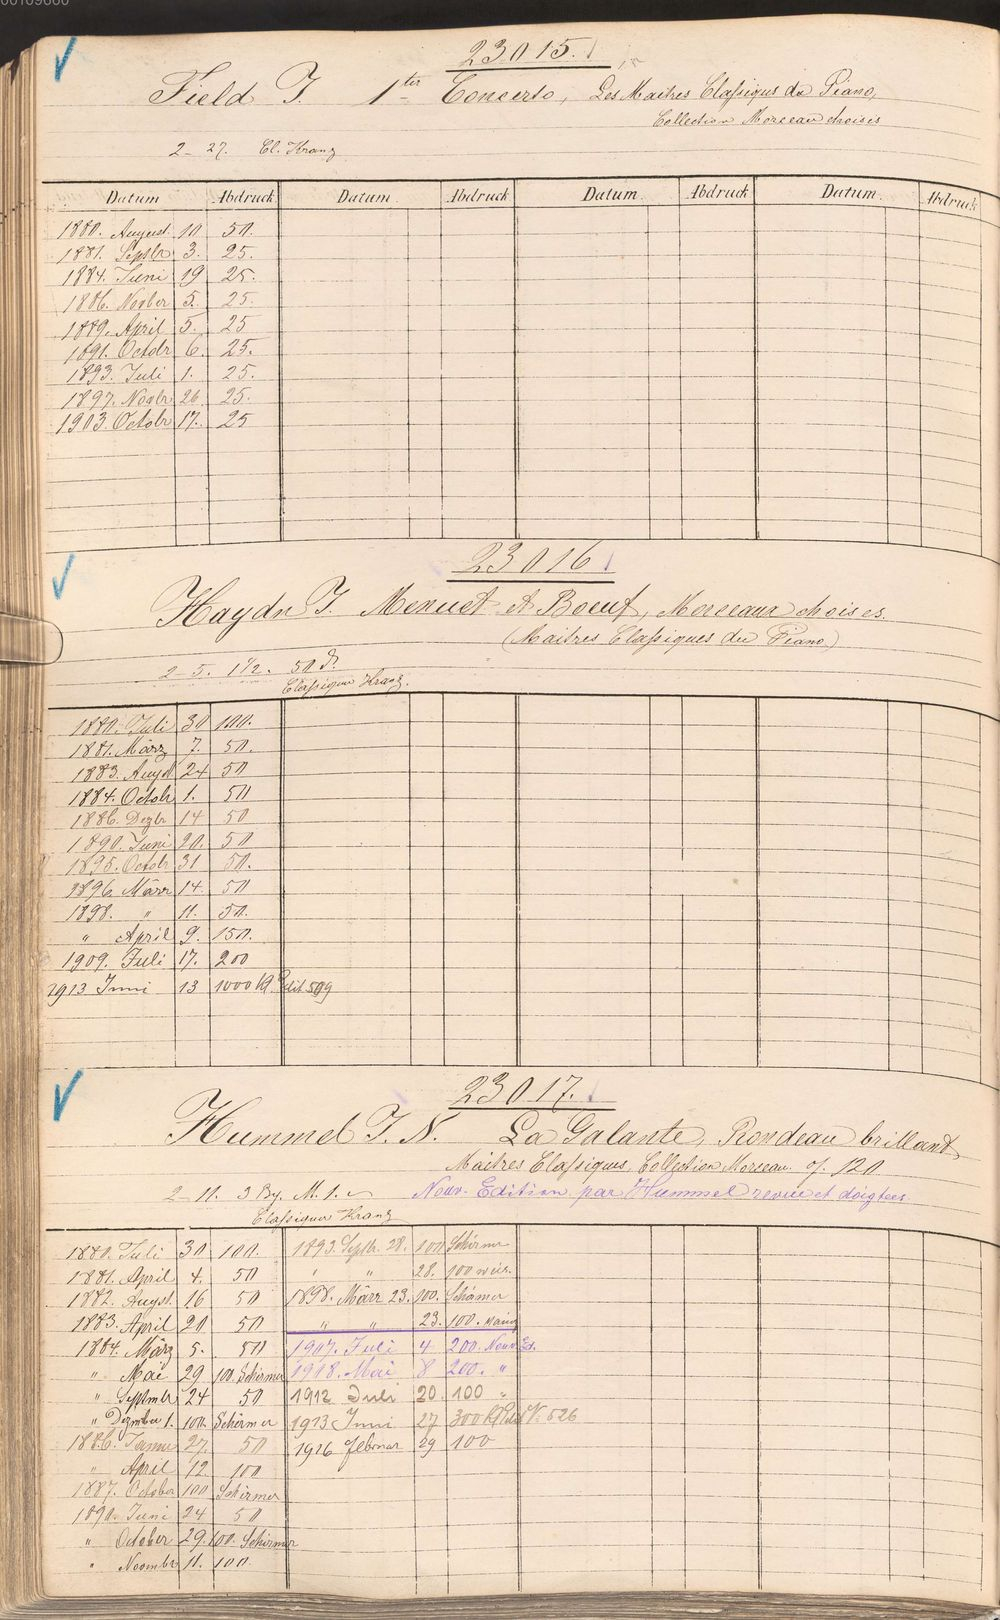 23015.
Field J. 1ter Concerto, Les Maitres Classiqus du Piano,
Collection Morceau choises
2-27. Cl. Kranz
Datum Abdruck Datum Abdruck Datum Abdruck Datum Abdruck
1880. August 10 50.
1881. Septbr 3. 25.
1884. Juni 19 25.
1886. Novber 5. 25.
1889. April 5. 25
1891. Octobr 6. 25.
1893. Juli 1. 25.
1897. Novbr 26 25.
1903. Octobr 17. 25
23016
Haydn J. Menuet et Boeuf, Morceaux choises.
(Maitres Classiques du Piano)
2-5. 1 1/2. 50 
Classiquer Kranz.
1880. Juli 30 100.
1881. März 7. 50.
1883. Augst 24 50
1884. Octobr 1. 50
1886. Dezbr 14 50
1890. Juni 20. 50
1895. Octobr 31 50.
1896. März 14. 50
1898. " 11. 50.
" April 9. 150.
1909. Juli 17. 200
1913 Juni 13 1000 Edit 509
23017.
Hummel J. N. La Galante, Rondeau brillant
Maitres Classiques, Collection Morceau. op. 120
2-11. 3 By. M. 1. Nouv. Edition par Hummel revue et doigtees
Classiquer Kranz
1880. Juli 30 100. 1893. Septbr. 28. 100 Schirmer
1881. April 4. 50 " " 28. 100
1882. Augst. 16 50 1898. März 23. 100. Schirmer
1883. April 20 50 " " 23. 100. Mainz
1884. März 5. 50 1907. Juli 4 200. Nouv Ed.
" Mai 29 100. Schirmer 1908. Mai 8 200. "
" Septmbr 24 50 1912 Juli 20 100 "
" Dezmber 1. 100. Schirmer 1913 Juni 27 300 Edit No. 526
1886. Januar 27. 50 1916 Februar 29 100
" April 12. 100
1887. October 100 Schirmer
1890. Juni 24 50
" October 29. 100. Schirmer
" Noember 11. 100.